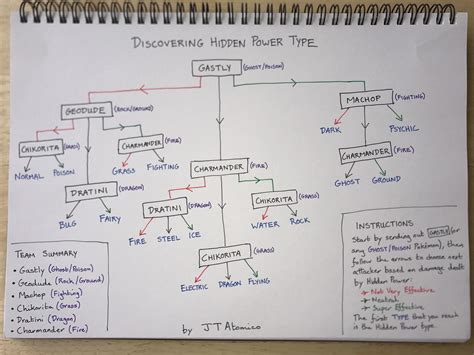 DISCOVERING HIDDEN POWER TYPE
GASTLY (GHOST/POISON)
GEODUDE (ROCK/GROUND)
MACHOP (FIGHTING)
CHIKORITA (GRASS)
CHARMANDER (FIRE)
DARK PSYCHIC
NORMAL POISON
GRASS FIGHTING
CHARMANDER (FIRE)
CHARMANDER (FIRE)
GHOST GROUND
DRATINI (DRAGON)
BUG FAIRY
DRATINI (DRAGON)
CHIKORITA (GRASS)
FIRE STEEL ICE
WATER ROCK
CHIKORITA (GRASS)
ELECTRIC DRAGON FLYING
TEAM SUMMARY
- Gastly (Ghost/Poison)
- Geodude (Rock/Ground)
- Machop (Fighting)
- Chikorita (Grass)
- Dratini (Dragon)
- Charmander (Fire)
by JTAtomico
INSTRUCTIONS
Start by sending out GASTLY (or
any Ghost/Poison Pokémon), then
follow the arrows to choose next
attacker based on damage dealt
by Hidden Power:
→ Not Very Effective
→ Neutral
→ Super Effective
The first TYPE that you reach
is the Hidden Power type.